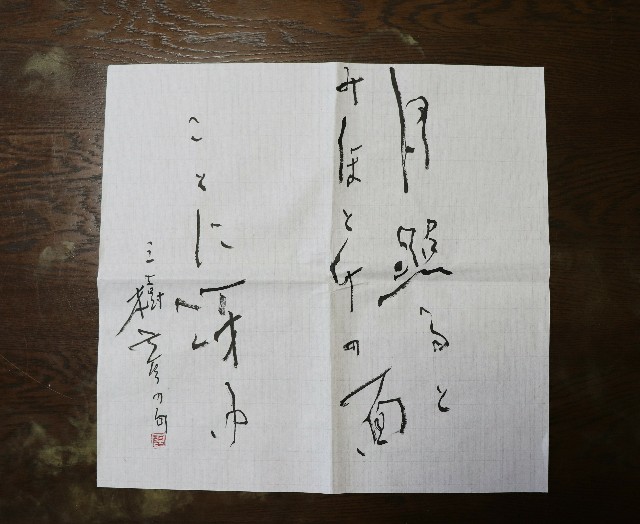 月照ると
みほとけの面
ことに
三樹彦の句